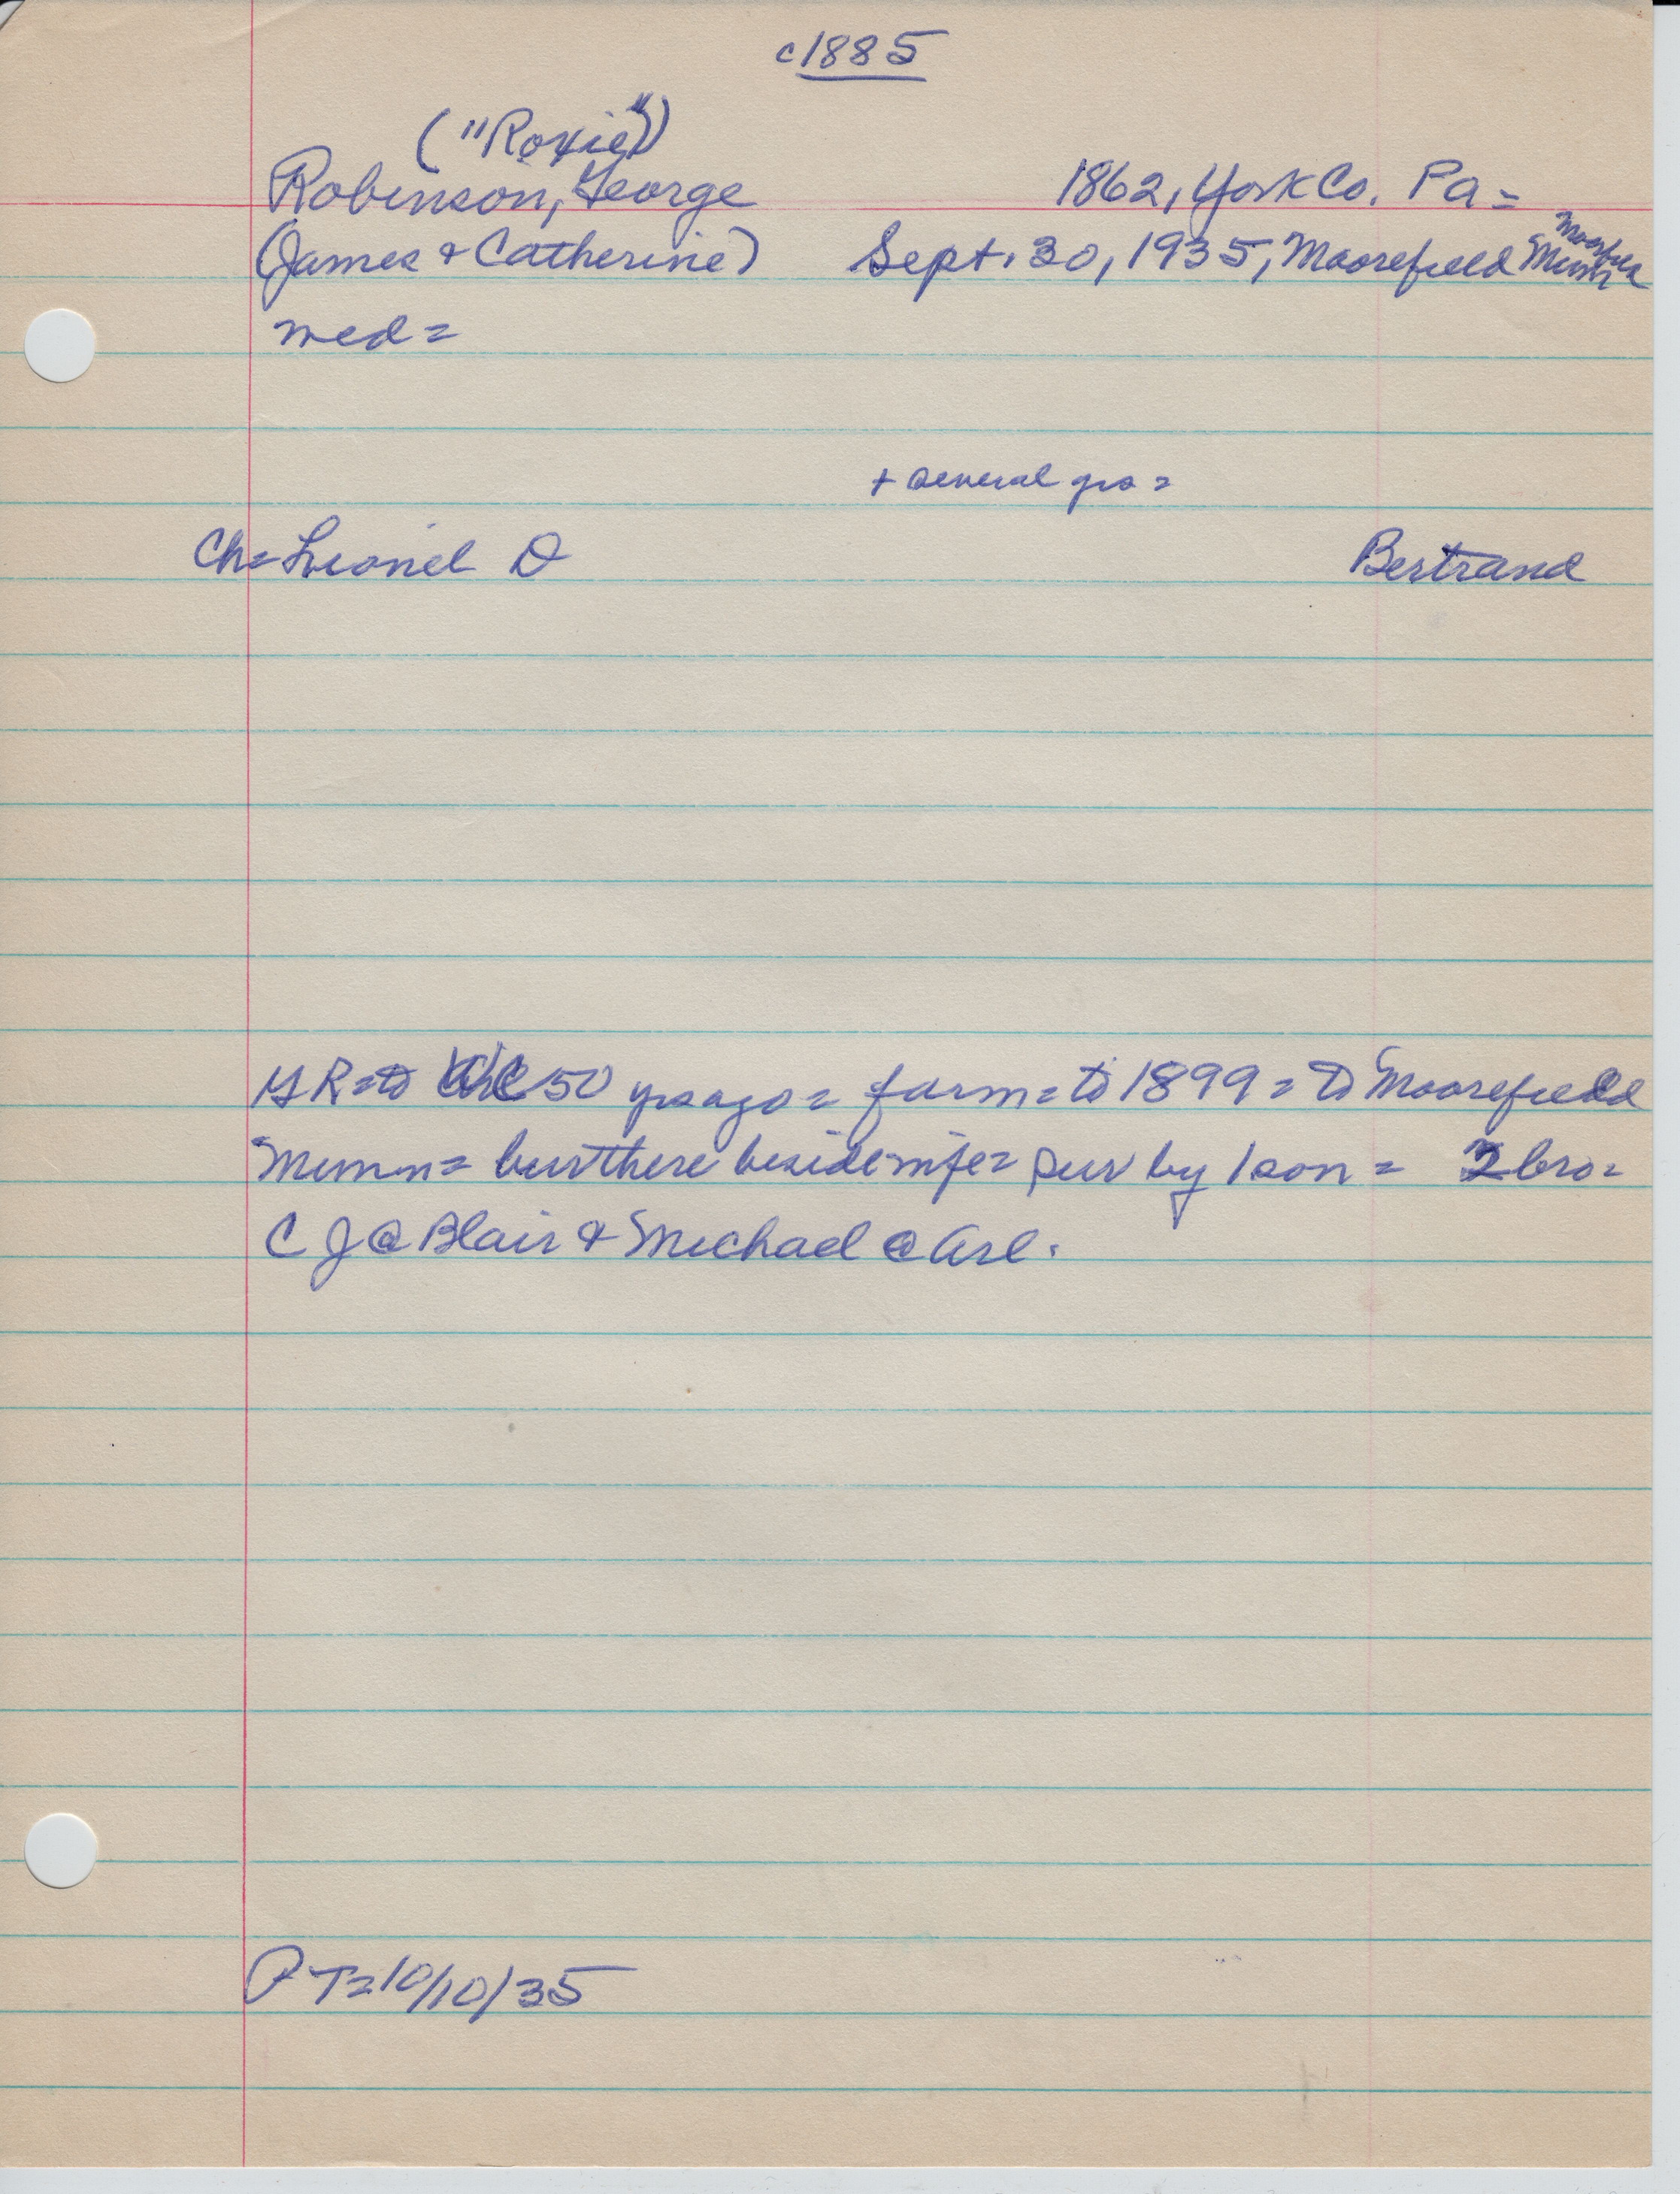 c1885
("Roxie")
Robinson, George 1862, York Co. Pa =
(James & Catherine) Sept. 30, 1935, Moorefield Minn
Moorefield
med =
+ several grs =
Ch = Lionel D Bertrand
GR = to 50 yrs ago = farm = to 1899 = to Moorefield
Minn = bur there beside wife = sur by 1 son = 2 bro =
C J @ Blair & Michael @ Arl.
PT = 10/10/35